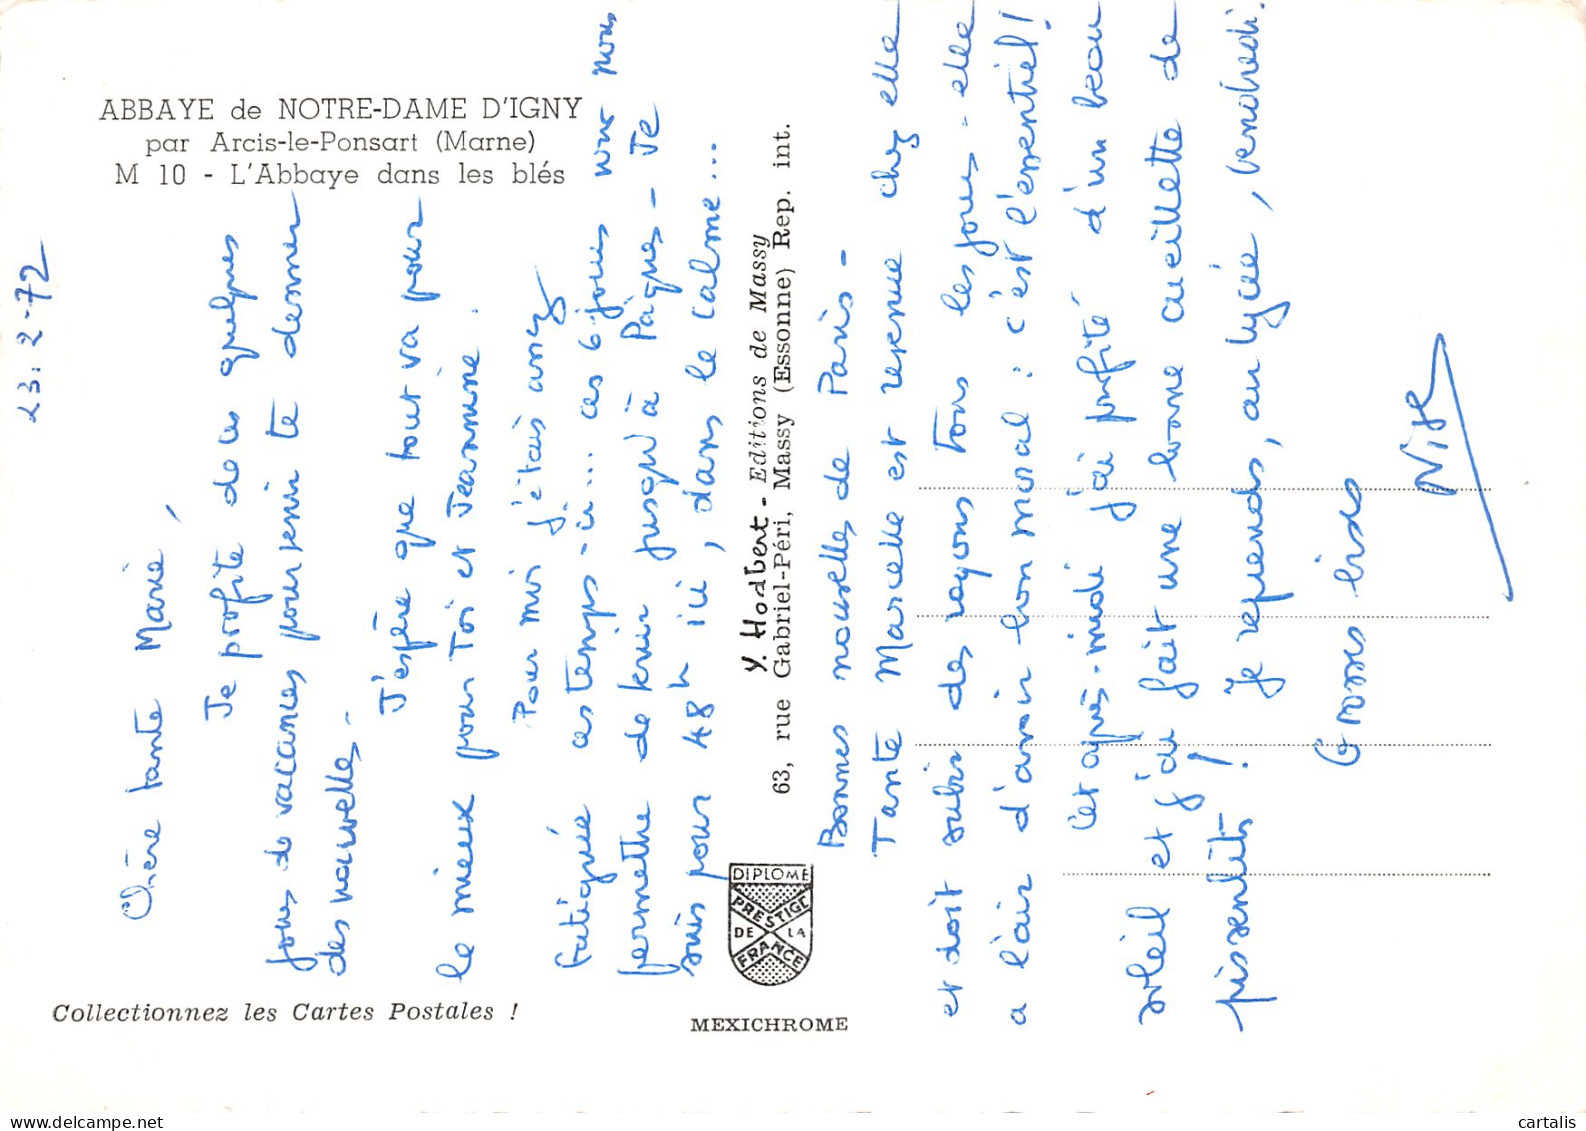 ABBAYE de NOTRE-DAME D'IGNY
par Arcis-le-Ponsart (Marne)
M 10 - L'Abbaye dans les blés
23.2-72
Chère tante Marie,
Je profite de ces quelques
jours de vacances pour venir te donner
des nouvelles -
J'espère que tout va pour
le mieux pour Toi et Jeannine.
Pour moi j'étais assez
fatiguée ces temps-ci... ces 6 jours vont nous
permettre de tenir jusqu'à Pâques - Je
suis pour 48h ici, dans le calme...
Y. Hodbert - Editions de Massy
63, rue Gabriel-Péri, Massy (Essonne) Rep. int.
DIPLOME
PRESTIGE
DE LA
FRANCE
Bonnes nouvelles de Paris -
Tante Marcelle est revenue chez elle
et doit subir des rayons tous les jours - elle
a l'air d'avoir bon moral : c'est l'essentiel !
Cet après-midi j'ai profité d'un beau
soleil et j'ai fait une bonne cueillette de
pissenlits ! Je reprends, au lycée, vendredi.
Grosses bises
Collectionnez les Cartes Postales !
MEXICHROME
cartalis